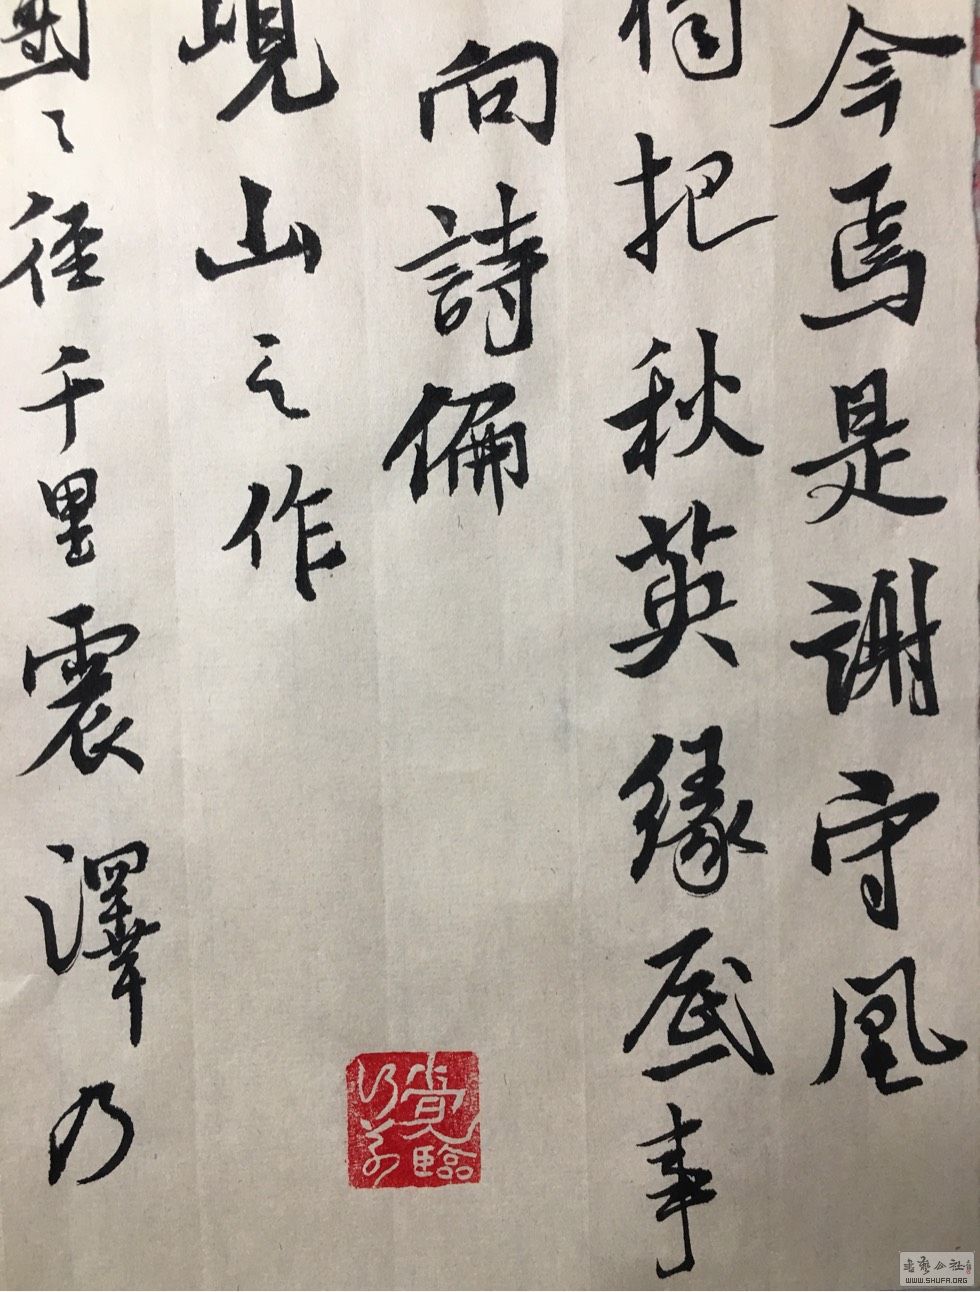 今焉是謝守風
把秋英緣底事
向詩偏
峴山之作
團々徑千里震澤乃
書藝公社
WWW.SHUFA.ORG